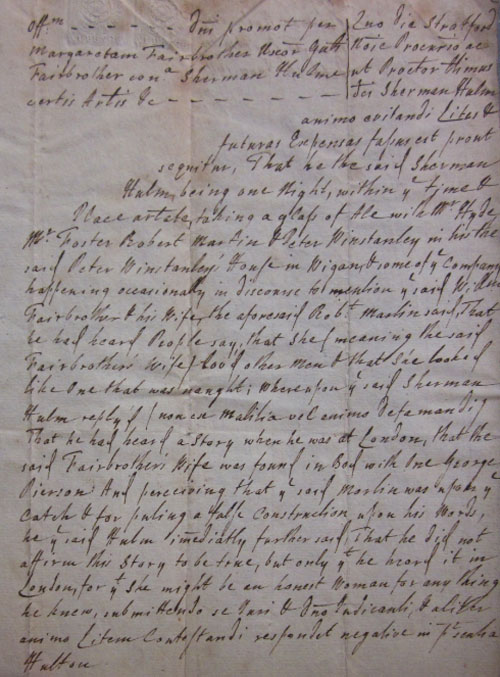 Offm - - - - - Dni promot per
Margaretam Fairbrother Uxor Guli
Fairbrother con a Sherman Hulme
certis Artis &c - - - - - - -
Quo die Stratford
Noie Procurio ac
ut Proctor
des Sherman Hulm
animo evitandi Lites &
futuras Expensas fassus est prout
sequitur, That he the said Sherman
Hulm, being one Night, within ye time &
Place artete, taking a glass of Ale with Mr Hyde
Mr. Foster Robert Martin & Peter Winstanley in his the
said Peter Winstanley's House in Wigan, & some of ye Company
happening occasionally in discourse to mention ye said Willm
Fairbrother & his Wife, the aforesaid Robt. Martin said, That
he had heard People say, that She (meaning the said
Fairbrothers Wife) lov'd other Men & that She looked
like One that was naught; whereupon ye said Sherman
Hulm reply'd (non ex Malitia vel animo Defamandi)
That he had heard a Story when he was at London, that the
said Fairbrothers Wife was found in Bed with One George
Pierson And perceiving that ye said Martin was upon ye
Catch & for puting a false Construction upon his Words,
he ye said Hulm imediatly further said, That he did not
affirm this Story to be true, but only yt he heard it in
London, for yt She might be an honest Woman for any thing
he knew, submittendo se Juri & Dno Judicanti, & aliter
animo Litem Contestandi respondet negative in
Hulton